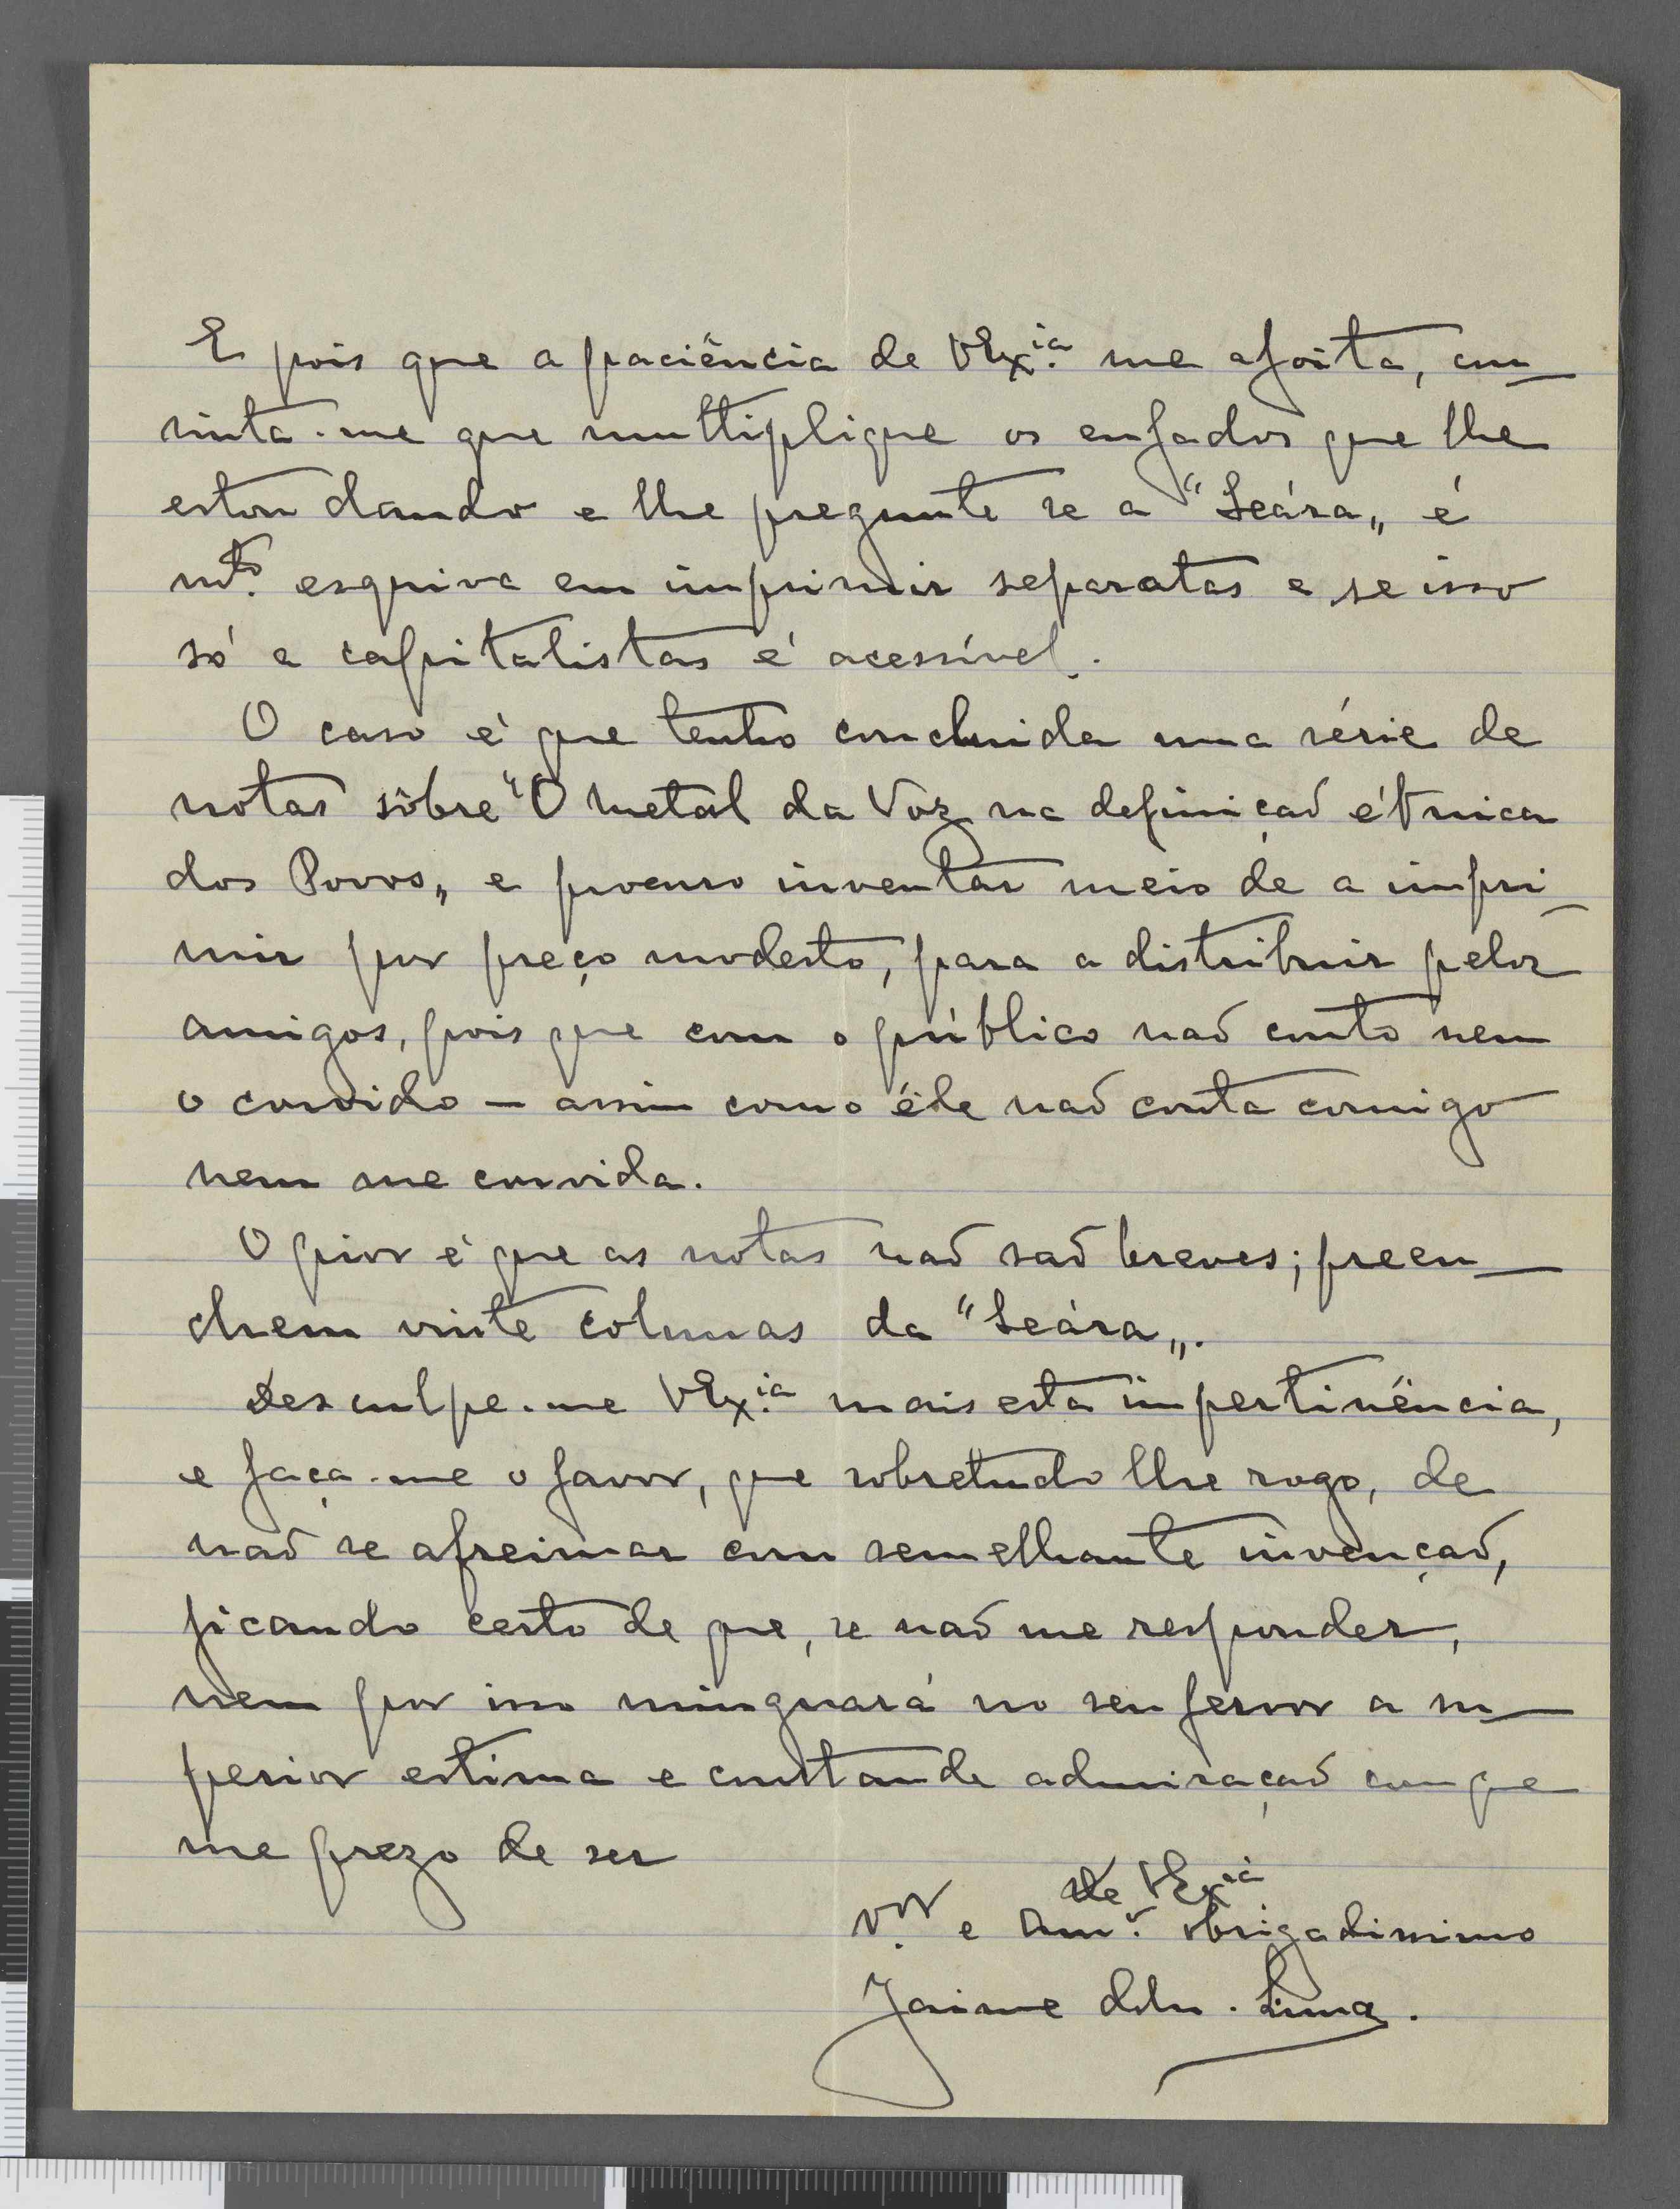 E pois que a paciência de VEx.ia me afoita, con-
sinta-me que multiplique os enfados que lhe
estou dando e lhe pregunte se a "Seára„ é
mto. esquiva em imprimir separatas e se isso
só a capitalistas é acessível.
O caso é que tenho concluida uma série de
notas sôbre "O Metal da Voz na definiçaõ étnica
dos Povos„ e procuro inventar meio de a impri-
mir por preço modesto, para a distribuir pelos
amigos, pois que com o público naõ conto nem
o convido — assim como êle naõ conta comigo
nem me convida.
O pior é que as notas naõ saõ breves; preen-
chem vinte colunas da "Seára„.
Desculpe-me VEx.ia mais esta impertinência,
e faça-me o favor, que sobretudo lhe rogo, de
naõ se afreimar com semelhante invençaõ,
ficando certo de que, se naõ me responder,
nem por isso minguará no seu fervor a su-
perior estima e constande admiraçaõ com que
me prezo de ser
de VExia
v.or e Am.o obrigadissimo
Jaime de Lima.